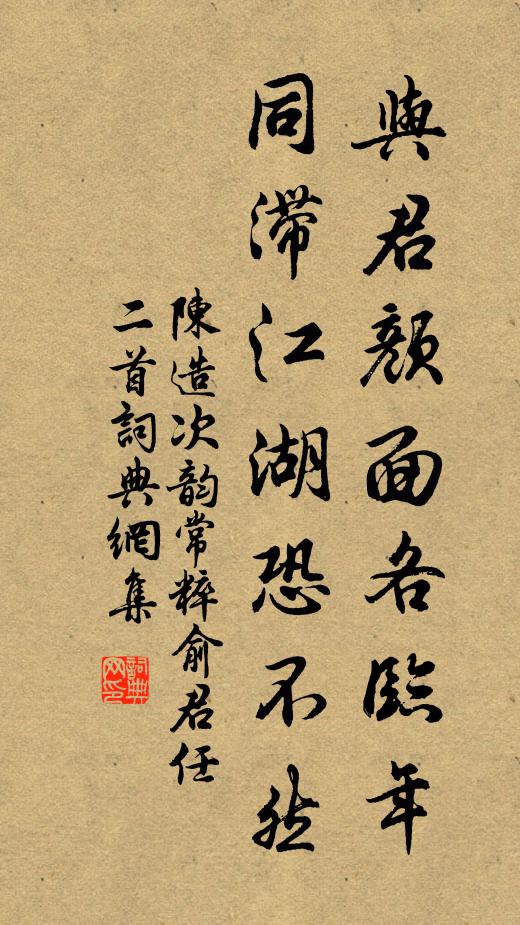 與君顏面各臨年
同滯江湖恐不然
陳造次韵常粹俞君任
二首詞典網集
詞典网印